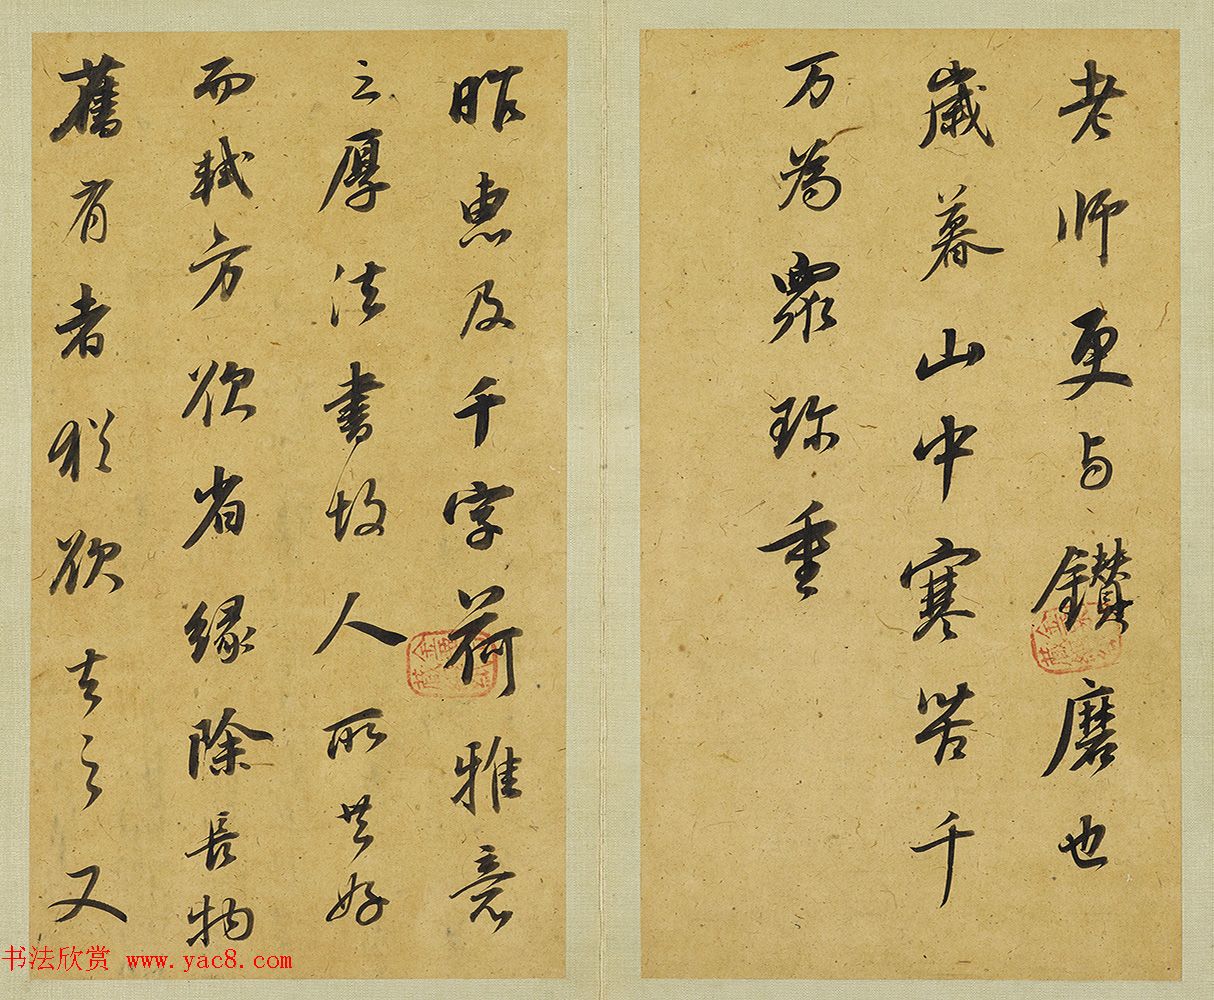 老师更与鑚磨也
歲暮山中寒苦千
万為眾珎重
昨惠及千字荷雅意
之厚法書故人所共好
而軾方欲省緣除長物
舊有者猶欲去之又
书法欣赏 www.yac8.com